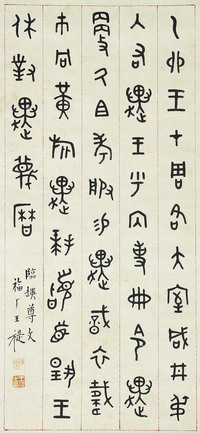 乙卯王才周各大室咸井弔
入右趩王乎內史冊令趩
更氒且考服易趩戠衣載
巿冋黃旂趩拜𩒨首揚王
休對趩蔑曆
臨趩尊文
福厂王禔